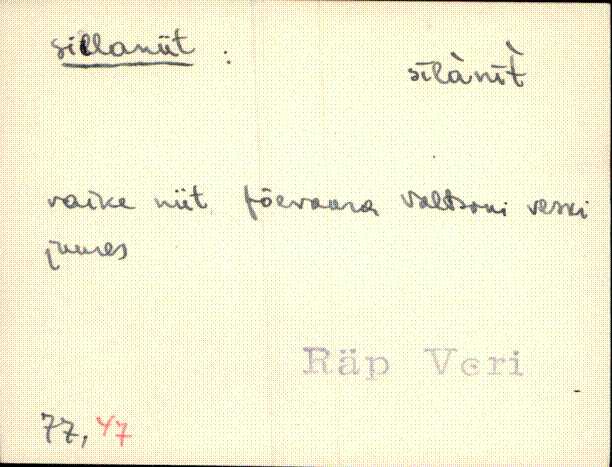 sillaniit :
sīlànīt̀
väike niit, jõevaara Valtsoni veski
juures
Räp Veri
77, 47